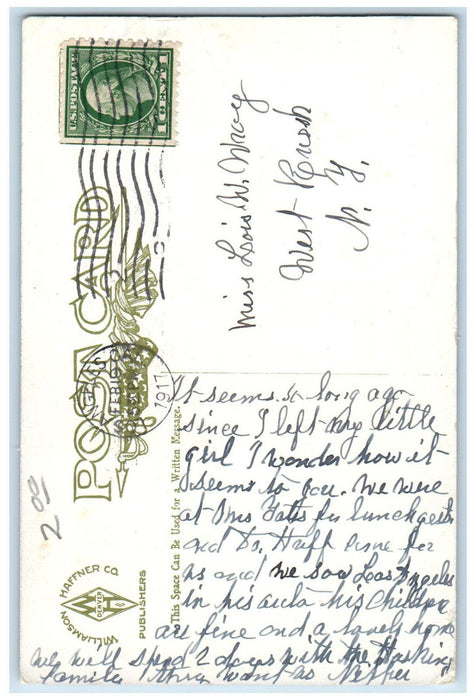 U.S. POSTAGE
1 CENT 1
POST CARD
FEB 19
1917
Miss Lois W. Wray
West Rush
N. Y.
This Space Can Be Used for a Written Message.
WILLIAMSON HAFFNER CO.
DENVER
PUBLISHERS
2 00
It seems so long ago
since I left my little
girl I wonder how it
seems to you. We were
at Mrs for lunch yester
and Dr. Haff came for
us and we saw Los Angeles
in his auto his children
are fine and a lovely home
we will spend 2 days with the Hoskins
family they want us